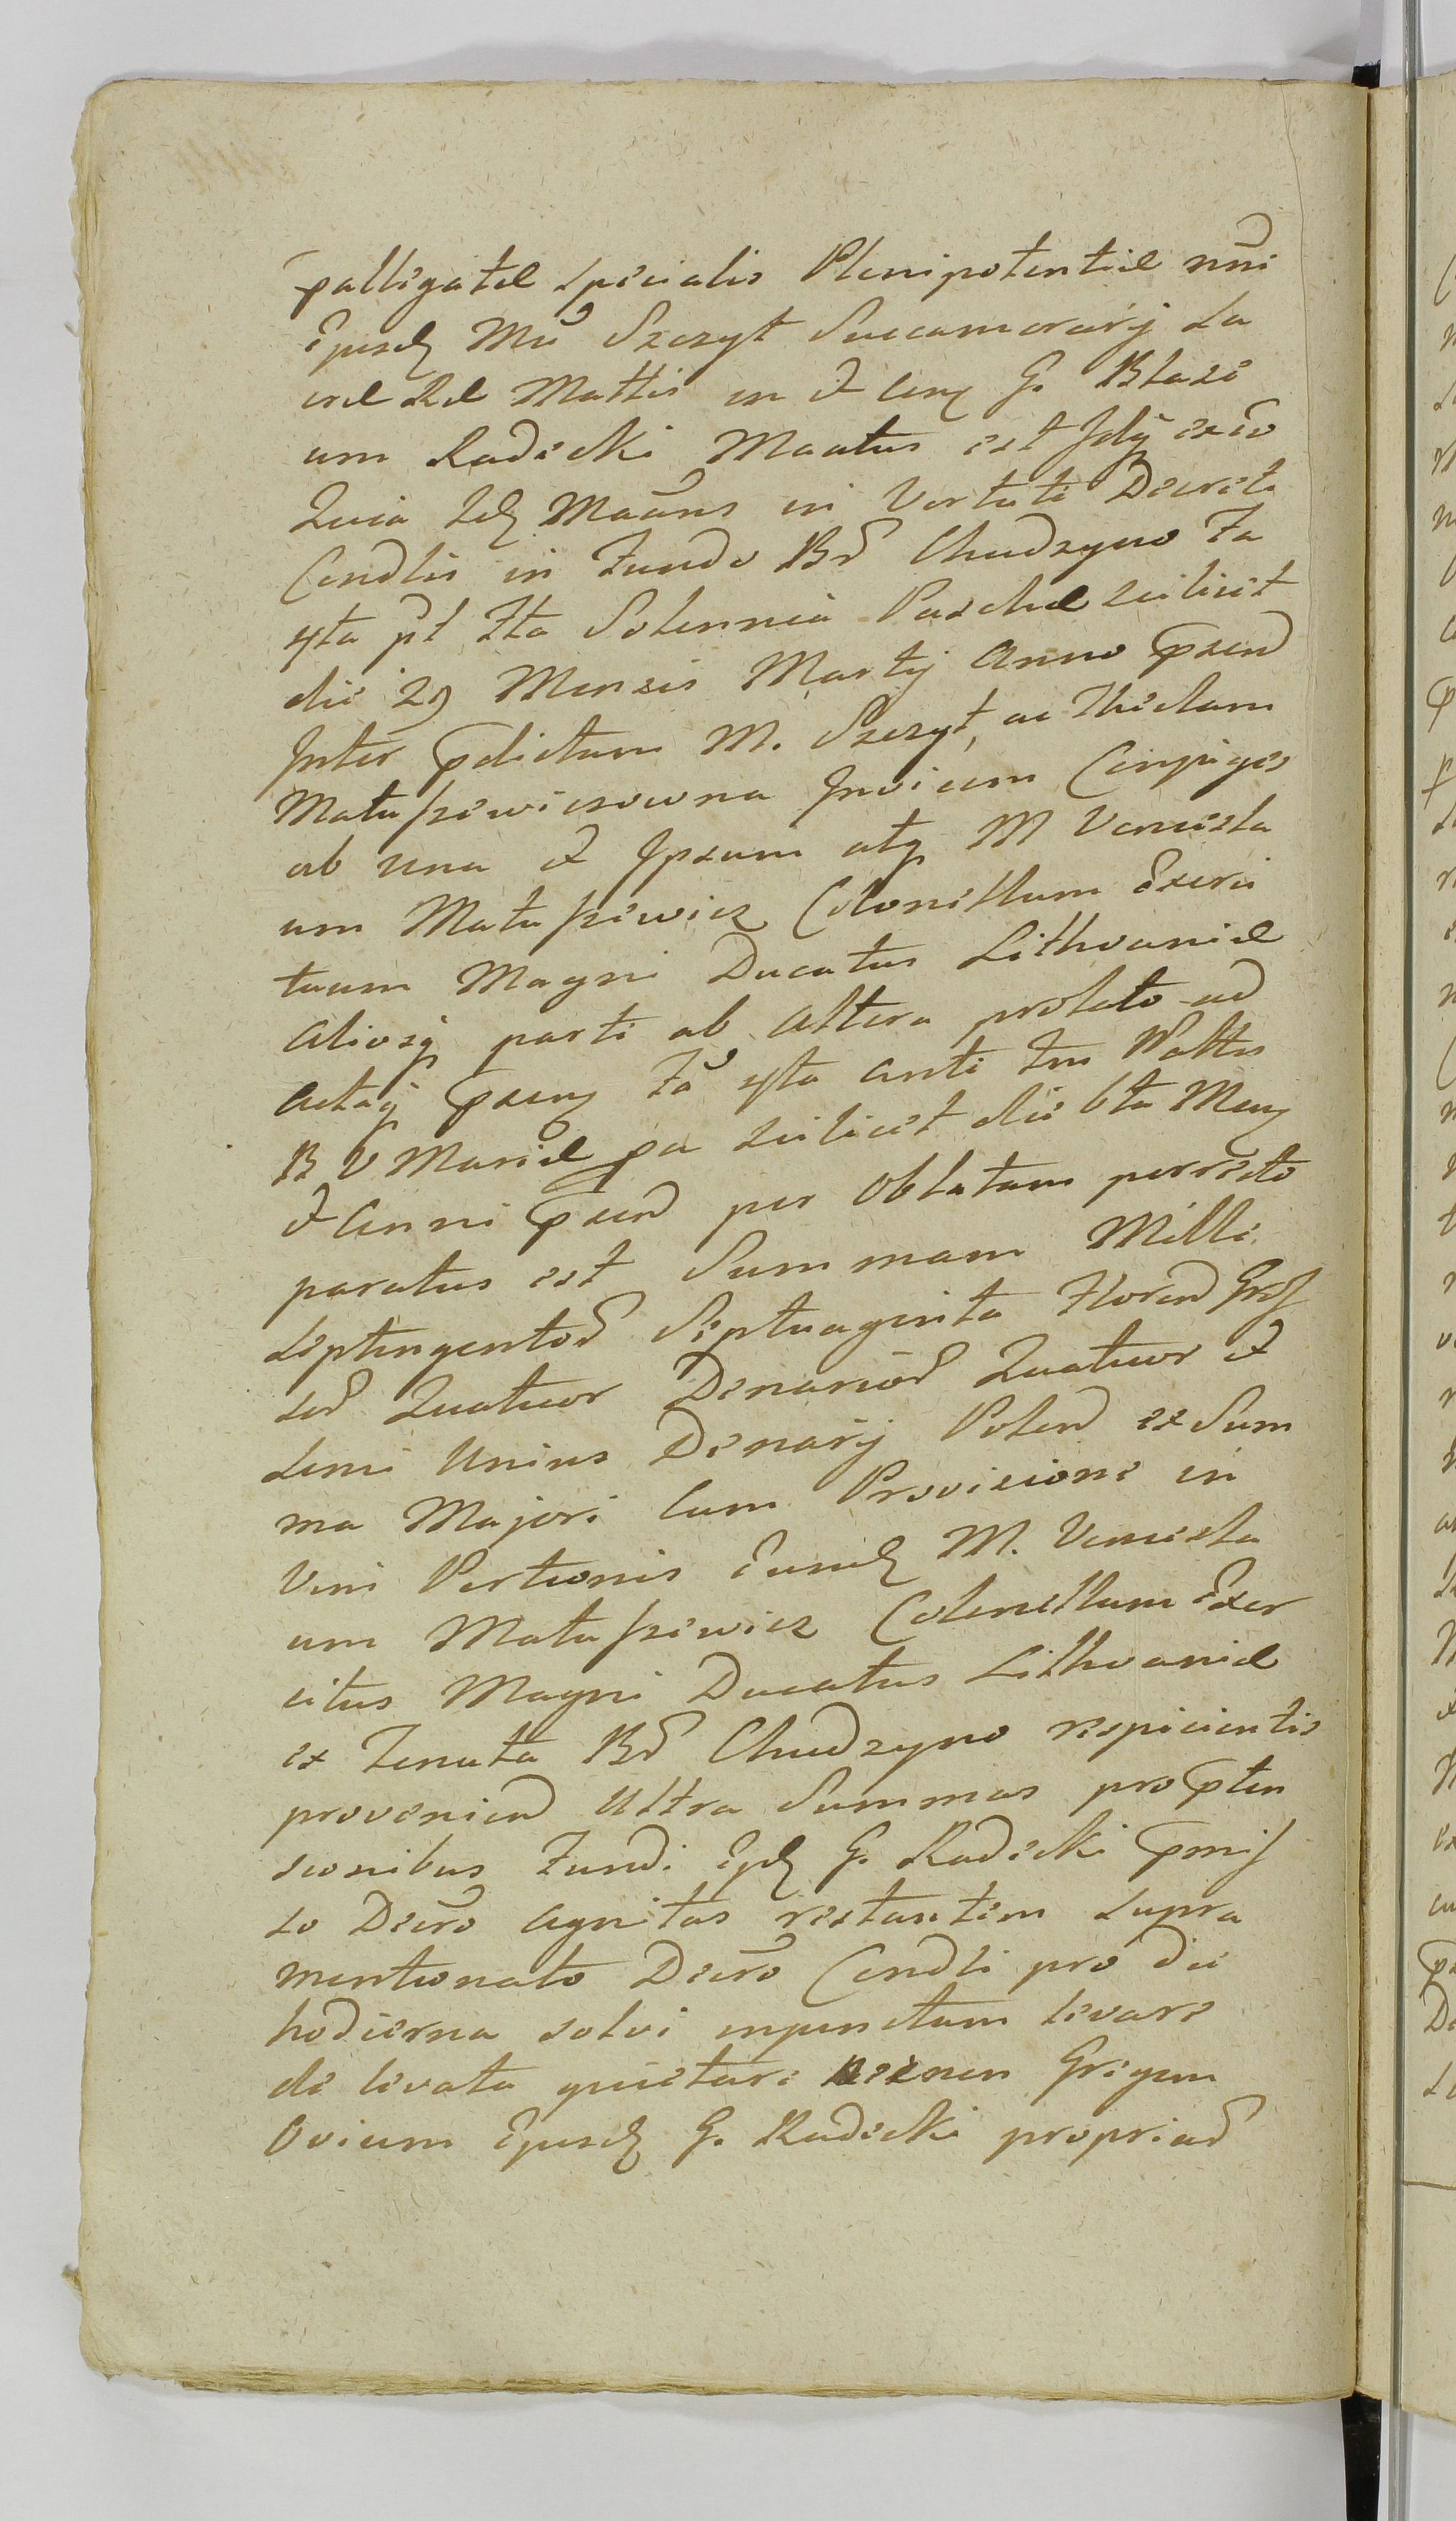 palligatæ specialis Plenipotentiæ nni
Ejusd Mci Szczyt Succamerarij Sa
cræ Ræ Mattis in et Conq G. Blasi
um Radecki Maatus est Idq exco
Quia Idq Maans in Vertute Decreti
Condlis in Fundo Bd Chudzyno Fa
ysta pt Fta Solennia Paschæ scilicet
die 29 Mensis Martij Anno pzend
Inter pdictum M. Szczyt, ac Theclam
Matuszewiczowna Invicem Conjuges
ab una et Ipsum atq M Vencesla
um Matuszewicz Colonellum Exerci
tuum Magni Ducatus Lithvaniæ
aliosq parte ab altera prolato ad
actaq pzenq Fa ysta anti Fm Nattis
B V Mariæ pa scilicet die 6ta Menq
et Anni pzend per Oblatam porrecto
paratus est Summam Mille
Septingentod Septuaginta Florend Gros
sod Quatuor Denariod Quatuor et
semi Unius Denarij Polend ex Sum
ma Majori cum Provisione in
Vim Portionis Eund M. Vencesla
um Matuszewicz Colonellum Exer
citus Magni Ducatus Lithvaniæ
ex Tenuta Bd Chudzyno respicientis
proveniend Ultra Summas pro pten
sionibus Fundi Ejd G. Radecki pmis
so Decro agnitas restantem supra
mentionato Decro Condli pro die
hodierna solvi injunctam levare
de levata quietare necnon Gregem
Ovium Ejusd G. Radecki propriad